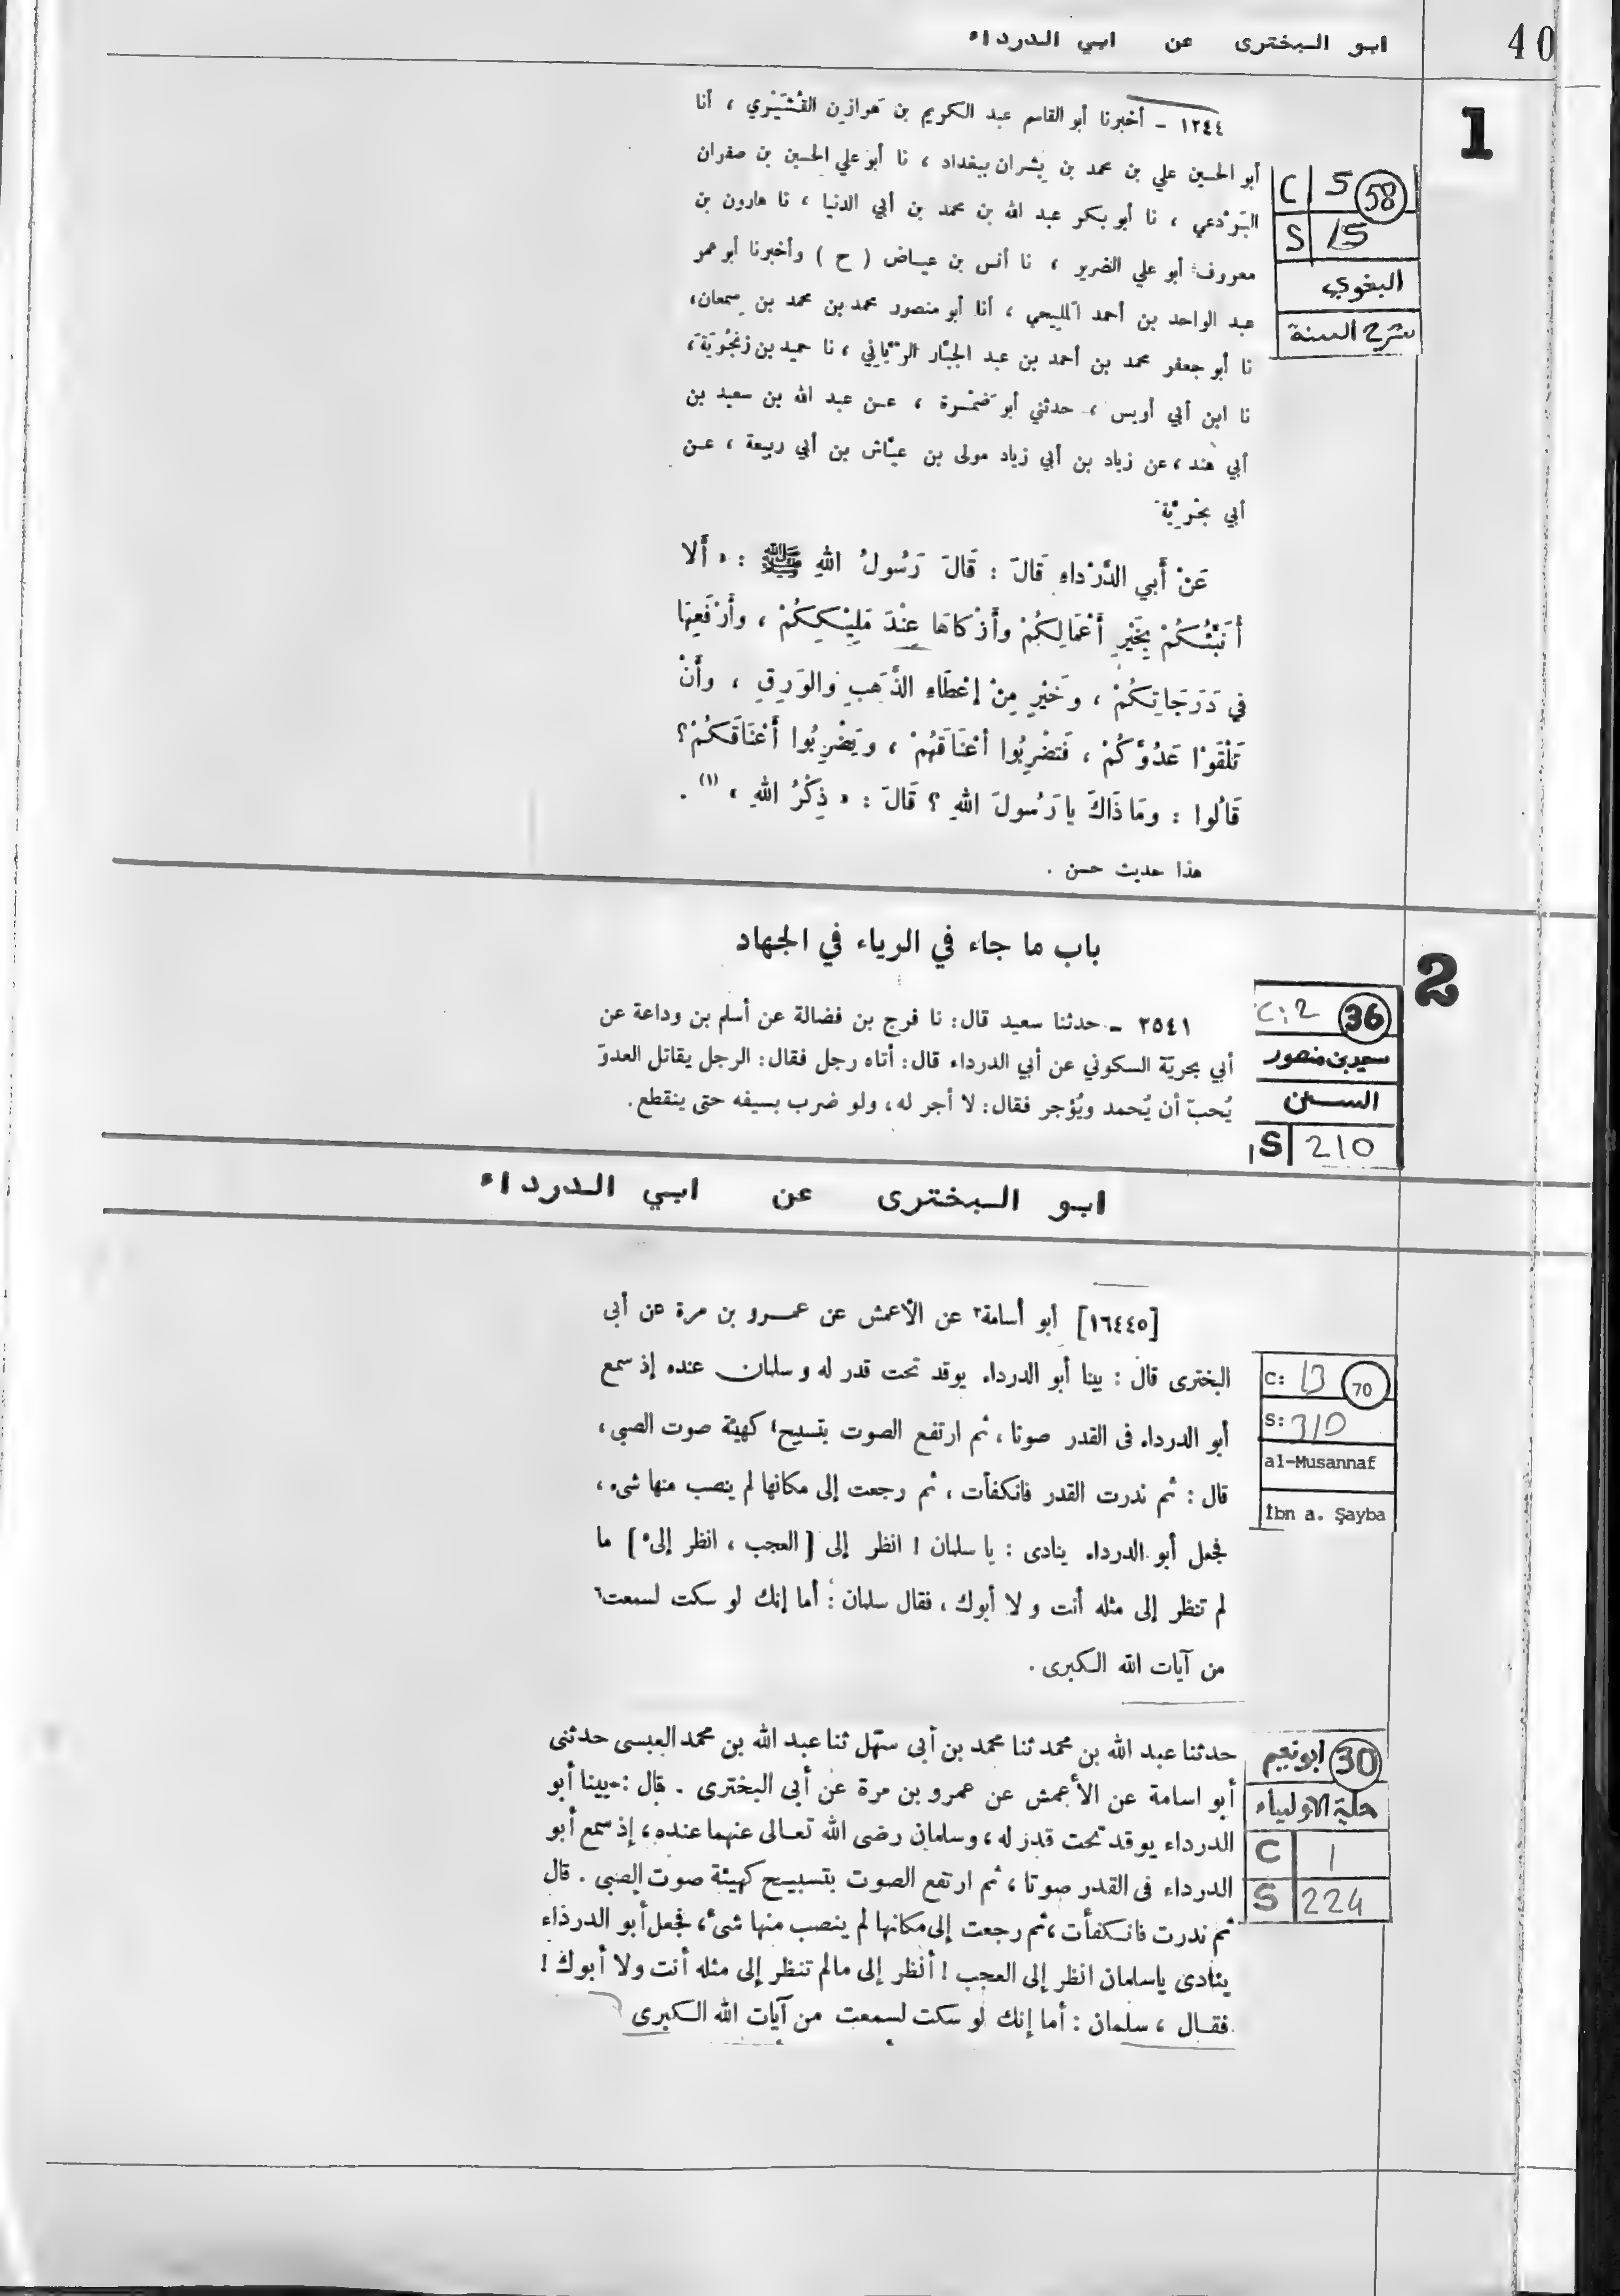 ابو البخترى عن ابي الدرداء
40
1
١٢٤٤ - أخبرنا أبو القاسم عبد الكريم بن هوازن القُشَيْري ، أنا
أبو الحسين علي بن محمد بن بِشران ببغداد ، نا أبو علي الحسين بن صفران
البَرْدعي ، نا أبو بكر عبد الله بن محمد بن أبي الدنيا ، نا هارون بن
معروف أبو علي الضرير ، نا أنس بن عياض ( ح ) وأخبرنا أبو عمر
عبد الواحد بن أحمد المليحي ، أنا أبو منصور محمد بن محمد بن سمعان،
نا أبو جعفر محمد بن أحمد بن عبد الجبّار الرَّيّاني ، نا حميد بن زنجُويَة،
نا ابن أبي أويس ، حدثني أبو ضَمْرة ، عن عبد الله بن سعيد بن
أبي هند ، عن زياد بن أبي زياد مولى بن عيّاش بن أبي ربيعة ، عن
أبي بحريّة
C 5 58
S 15
البغوي
شرح السنة
عَنْ أَبي الدَّرْداءِ قَالَ : قَالَ رَسُولُ اللهِ ﷺ : « أَلا
أُنَبِّئُكُمْ بِخَيْرِ أَعْمَالِكُمْ وأَزْكاهَا عِنْدَ مَلِيْكِكُمْ ، وأَرْفَعِهَا
في دَرَجَاتِكُمْ ، وَخَيْرٍ مِنْ إِعْطَاءِ الذَّهَبِ والوَرِقِ ، وأَنْ
تَلْقَوْا عَدُوَّكُمْ ، فَتَضْرِبُوا أعْنَاقَهُمْ ، ويَضْرِبُوا أَعْنَاقَكُمْ؟
قَالُوا : ومَا ذَاكَ يا رَسُولَ اللهِ ؟ قَالَ : « ذِكْرُ اللهِ » (١) .
هذا حديث حسن .
2
باب ما جاء في الرياء في الجهاد
٢٥٤١ - حدثنا سعيد قال: نا فرج بن فضالة عن أسلم بن وداعة عن
أبي بحريّة السكوني عن أبي الدرداء قال: أتاه رجل فقال: الرجل يقاتل العدوّ
يُحبّ أن يُحمد ويُؤجر فقال: لا أجر له، ولو ضرب بسيفه حتى ينقطع.
C:2 36
سعيد بن منصور
السنن
S 210
ابو البخترى عن ابي الدرداء
[١٦٤٤٥] أبو أسامة٢ عن الأعمش عن عمرو بن مرة عن أبى
البخترى قال : بينا أبو الدرداء يوقد تحت قدر له وسلمان عنده إذ سمع
أبو الدرداء فى القدر صوتا ، ثم ارتفع الصوت بتسبيح٤ كهيئة صوت الصبى ،
قال : ثم ندرت القدر فانكفأت ، ثم رجعت إلى مكانها لم ينصب منها شىء ،
فجعل أبو الدرداء ينادى : يا سلمان ! انظر إلى [ العجب ، انظر إلى٥ ] ما
لم تنظر إلى مثله أنت ولا أبوك ، فقال سلمان : أما إنك لو سكت لسمعت٦
من آيات الله الكبرى .
C: 13 70
S: 310
al-Musannaf
İbn a. Şayba
حدثنا عبد الله بن محمد ثنا محمد بن أبى سهل ثنا عبد الله بن محمد العبسى حدثنى
أبو اسامة عن الأعمش عن عمرو بن مرة عن أبى البخترى . قال :- بينا أبو
الدرداء يوقد تحت قدر له ، وسلمان رضى الله تعالى عنهما عنده ، إذ سمع أبو
الدرداء فى القدر صوتا ، ثم ارتفع الصوت بتسبيح كهيئة صوت الصبى . قال
ثم ندرت فانكفأت ، ثم رجعت إلى مكانها لم ينصب منها شىء ، فجعل أبو الدرداء
ينادى ياسلمان انظر إلى العجب ! أنظر إلى مالم تنظر إلى مثله أنت ولا أبوك !
فقال ، سلمان : أما إنك لو سكت لسمعت من آيات الله الكبرى
30 ابو نعيم
حلية الاولياء
C 1
S 224